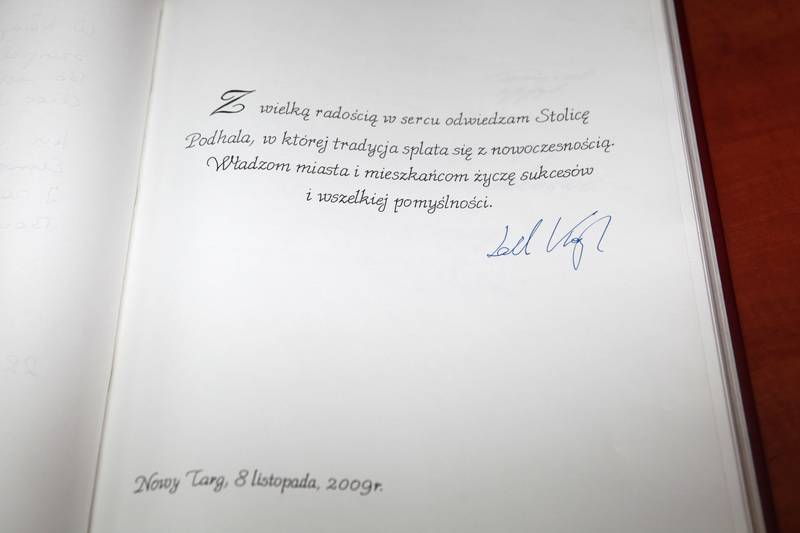 Z wielką radością w sercu odwiedzam Stolicę
Podhala, w której tradycja splata się z nowoczesnością.
Władzom miasta i mieszkańcom życzę sukcesów
i wszelkiej pomyślności.
Nowy Targ, 8 listopada, 2009r.